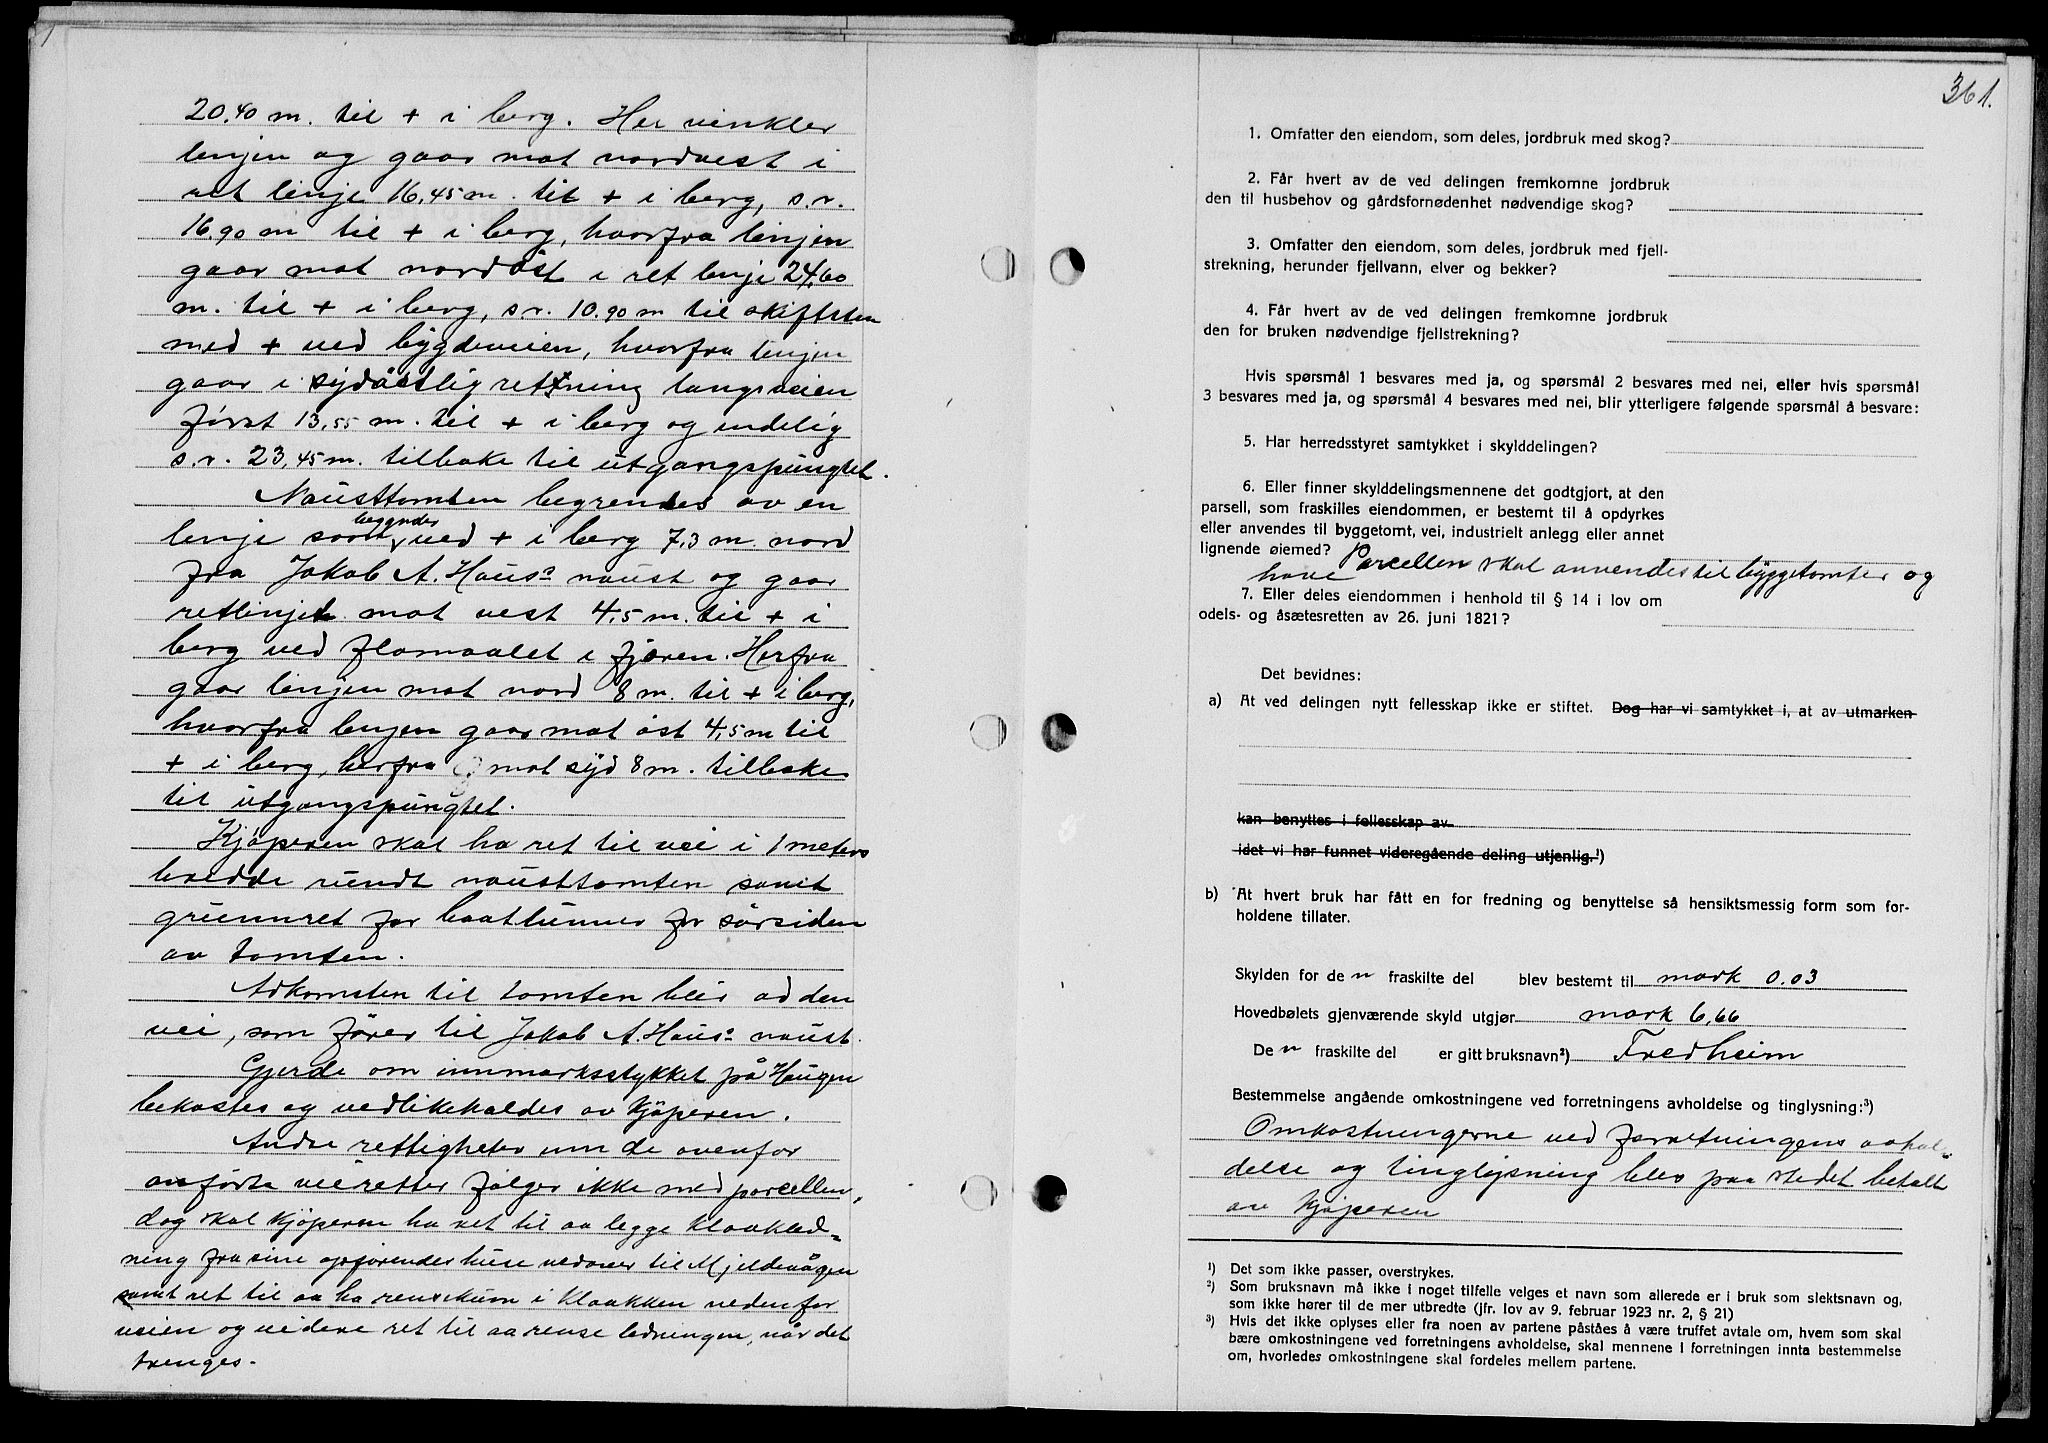 20.40 m. til + i berg. Her vinkler
linjen og gaar mot nordvest i
ret linje 16,45 m. til + i berg, s.r.
16.90 m til + i berg, hvorfra linjen
gaar mot nordöst i ret linje 24,60
m. til + i berg, s.r. 10.90 m til skiftsten
med + ved bygdeveien, hvorfra linjen
gaar i sydöstlig retning langs veien
först 13,55 m. til + i berg og endelig
s.r. 23,45 m. tilbake til utgangspungtet.
Nausttomten begrendses av en
begynder
linje som ved + i berg 7,3 m. nord
fra Jakob A. Haus's naust og gaar
retlinjet mot vest 4,5 m. til + i
berg ved flomaalet i fjæren. Herfra
gaar linjen mot nord 8 m. til + i berg,
hvorfra linjen gaar mot öst 4,5 m til
+ i berg, herfra mot syd 8 m. tilbake
til utgangspungtet.
Kjöperen skal ha ret til vei i 1 meters
bredde rundt nausttomten samt
grunnret for baatlunner for sörsiden
av tomten.
Adkomsten til tomten blir ad den
vei, som förer til Jakob A. Haus's naust.
Gjerde om innmarksstykket på Haugen
bekostes og vedlikeholdes av kjöperen.
Andre rettigheter enn de ovenfor
anförte veiretter fölger ikke med parcellen,
dog skal kjöperen ha ret til aa legge kloakled-
ning fra sine opförendes huse nedover til Mjeldevågen
samt ret til aa ha rensekum i kloakken nedenfor
veien og videre ret til aa rense ledningen, når det
trenges.
361.
1. Omfatter den eiendom, som deles, jordbruk med skog?
2. Får hvert av de ved delingen fremkomne jordbruk
den til husbehov og gårdsfornødenhet nødvendige skog?
3. Omfatter den eiendom, som deles, jordbruk med fjell-
strekning, herunder fjellvann, elver og bekker?
4. Får hvert av de ved delingen fremkomne jordbruk
den for bruken nødvendige fjellstrekning?
Hvis spørsmål 1 besvares med ja, og spørsmål 2 besvares med nei, eller hvis spørsmål
3 besvares med ja, og spørsmål 4 besvares med nei, blir ytterligere følgende spørsmål å besvare:
5. Har herredsstyret samtykket i skylddelingen?
6. Eller finner skylddelingsmennene det godtgjort, at den
parsell, som fraskilles eiendommen, er bestemt til å opdyrkes
eller anvendes til byggetomt, vei, industrielt anlegg eller annet
lignende øiemed? Parcellen skal anvendes til byggetomter og
have
7. Eller deles eiendommen i henhold til § 14 i lov om
odels- og åsætesretten av 26. juni 1821?
Det bevidnes:
a) At ved delingen nytt fellesskap ikke er stiftet. Dog har vi samtykket i, at av utmarken
kan benyttes i fellesskap av
idet vi har funnet videregående deling utjenlig.¹)
b) At hvert bruk har fått en for fredning og benyttelse så hensiktsmessig form som for-
holdene tillater.
Skylden for de n fraskilte del blev bestemt til mark 0.03
Hovedbølets gjenværende skyld utgjør mark 6,66
De n fraskilte del er gitt bruksnavn²) Fredheim
Bestemmelse angående omkostningene ved forretningens avholdelse og tinglysning:³)
Omkostningerne ved forretningens avhol-
delse og tinglysning blev paa stedet betalt
av kjöperen
¹) Det som ikke passer, overstrykes.
²) Som bruksnavn må ikke i noget tilfelle velges et navn som allerede er i bruk som slektsnavn og,
som ikke hører til de mer utbredte (jfr. lov av 9. februar 1923 nr. 2, § 21)
³) Hvis det ikke oplyses eller fra noen av partene påståes å være truffet avtale om, hvem som skal
bære omkostningene ved forretningens avholdelse, skal mennene i forretningen innta bestemmelse
om, hvorledes omkostningene skal fordeles mellem partene.